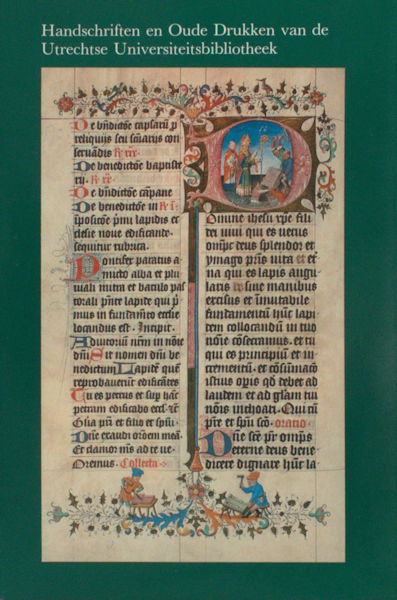 Handschriften en Oude Drukken van de
Utrechtse Universiteitsbibliotheek
De bñdictõe capsarũ p
reliquijs seu
seruãdis
De benedictõe baptiste
rij.
De bñdictõe cãpane
De benedictõe in
ipositõe pmi lapidis et
clesie noue edificante.
sequitur rubrica.
Pontifex paratus a
micto alba et plu
uiali mitra et baculo pas
torali pñte lapide qui p
mus in fundamẽto ecclie
locandus est. Incipit.
Adiutoriũ nrm in noie
dñi Sit nomen dñi be
nedictum Lapidẽ quẽ
reprobauerũt edificãtes
Tu es petrus et sup hãc
petram edificabo
Glia pri et filio et
Dñe exaudi orõem meã.
Et clamor mẽs ad te ve
Oremus. Collecta
Domine ihesu xpe fili
dei uiui qui es verus
omps deus splendor et
ymago pris vita et et
na qui es lapis angu
laris de sine manibus
excisus et imutabile
fundamentũ hũc lapi
dem collocandũ in tuo
noie cõsecramus. et tu
qui es principiũ et in
crementũ. et cõsũmatõ
istius opis qđ debet ad
laudem et ad gliam tui
nois inchoari. Qui cũ
pre et spũ sco. oratio
Dñe sce pr omps
eterne deus bene
dicere dignare hũc la